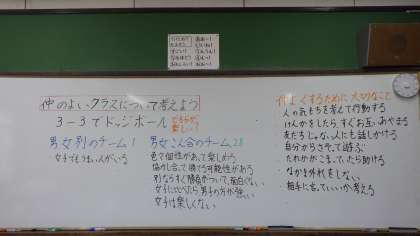 仲のよいクラスについて考えよう
3-3でドッジボール
どちらが楽しい?
男女別のチーム 1
女子でも強い人がいる
男女こん合のチーム 28
色々個性があって楽しめる
協力し合って勝てる可能性がある
別ならすぐ勝負がついて面白くない
女子に比べたら男子の方が強い
女子は楽しくない
仲よくするために大切なこと
人の気もちを考えて行動する
けんかをしたらすぐお互いあやまる
友だちじゃない人にも話しかける
自分からさそって遊ぶ
だれかがこまっていたら助ける
なかま外れをしない
相手に合っていいか考える